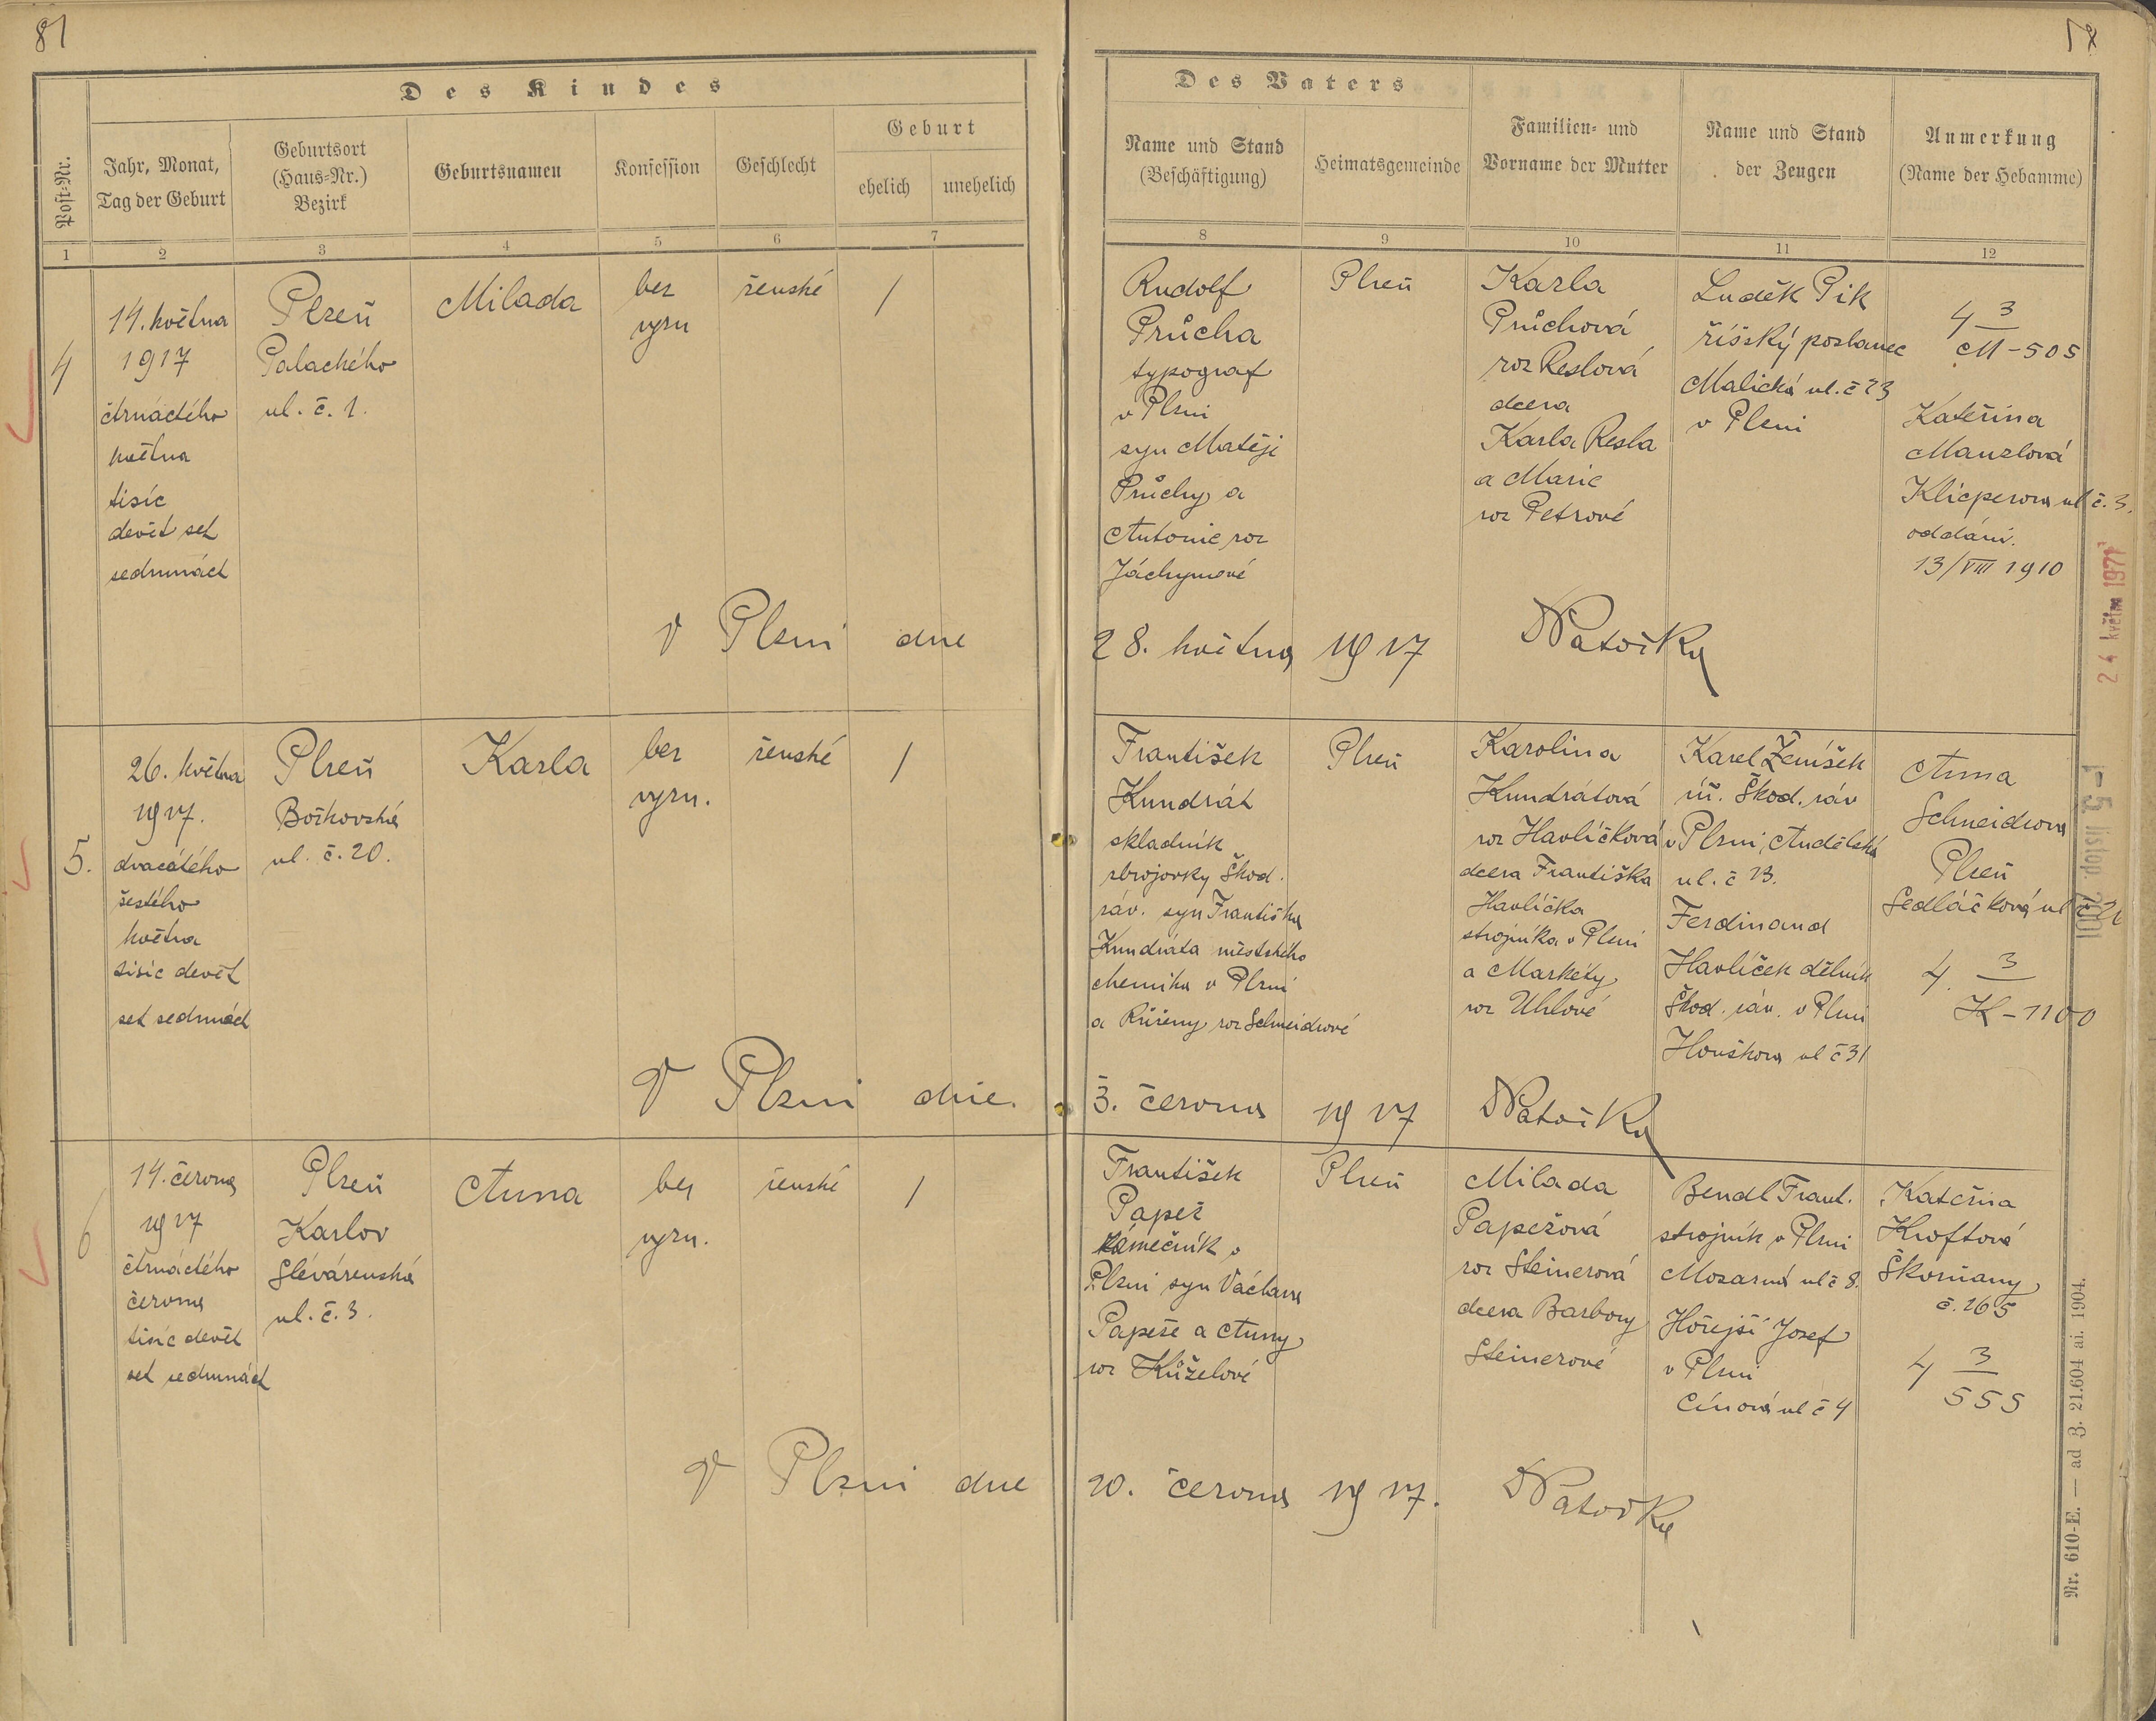 81
Des Kindes
Post-Nr.
Jahr, Monat,
Tag der Geburt
Geburtsort
(Haus-Nr.)
Bezirk
Geburtsnamen
Konfession
Geschlecht
Geburt
ehelich
unehelich
1
2
3
4
5
6
7
Des Vaters
Name und Stand
(Beschäftigung)
Heimatsgemeinde
Familien- und
Vorname der Mutter
Name und Stand
der Zeugen
Anmerkung
(Name der Hebamme)
8
9
10
11
12
4
14. května
1917
čtrnáctého
května
tisíc
devět set
sedmnáct
Plzeň
Palackého
ul. č. 1.
Milada
bez
vyzn
ženské
/
Rudolf
Průcha
typograf
v Plzni
syn Matěje
Průchy a
Antonie roz
Jáchymové
Plzeň
Karla
Průchová
roz Reslová
dcera
Karla Resla
a Marie
roz Petrové
Luděk Pik
říšský poslanec
Malická ul. č 23
v Plzni
4 3
M-505
Kateřina
Manzlová
Klicperova ul č. 3.
oddáni.
13/VIII 1910
V Plzni dne
28. května 1917
24 květin 1977
5.
26. května
1917.
dvacátého
šestého
května
tisíc devět
set sedmnáct
Plzeň
Božkovská
ul. č. 20.
Karla
bez
vyzn.
ženské
/
František
Kundrát
skladník
zbrojovky Škod.
záv. syn Františka
Kundráta městského
chemika v Plzni
a Růženy roz Schneidrové
Plzeň
Karolina
Kundrátová
roz Havlíčková
dcera Františka
Havlíčka
strojníka v Plzni
a Markéty
roz Uhlové
Karel Ženíšek
úř. Škod. záv
v Plzni, Andělská
ul. č 23.
Ferdinand
Havlíček dělník
Škod. záv. v Plzni
Houškova ul č 31
Anna
Schneidrova
Plzeň
Sedláčková ul
4. 3
K-1100
-5 listop. 2001
V Plzni dne.
3. června 1917
6
14. června
1917
čtrnáctého
června
tisíc devět
set sedmnáct
Plzeň
Karlov
Slévárenská
ul. č. 3.
Anna
bez
vyzn.
ženské
/
František
Papež
zámečník v
Plzni syn Václava
Papeže a Anny
roz Kůželové
Plzeň
Milada
Papežová
roz Steinerová
dcera Barbory
Steinerové
Bendl Frant.
strojník v Plzni
Mozartná ul č 8.
Hořejší Josef
v Plzni
Cínová ul č 4
Kateřina
Kroftová
Škvrňany
č. 265
4 3
555
V Plzni dne
20. června 1917.
Nr. 610-E. — ad Z. 21.604 ai. 1904.